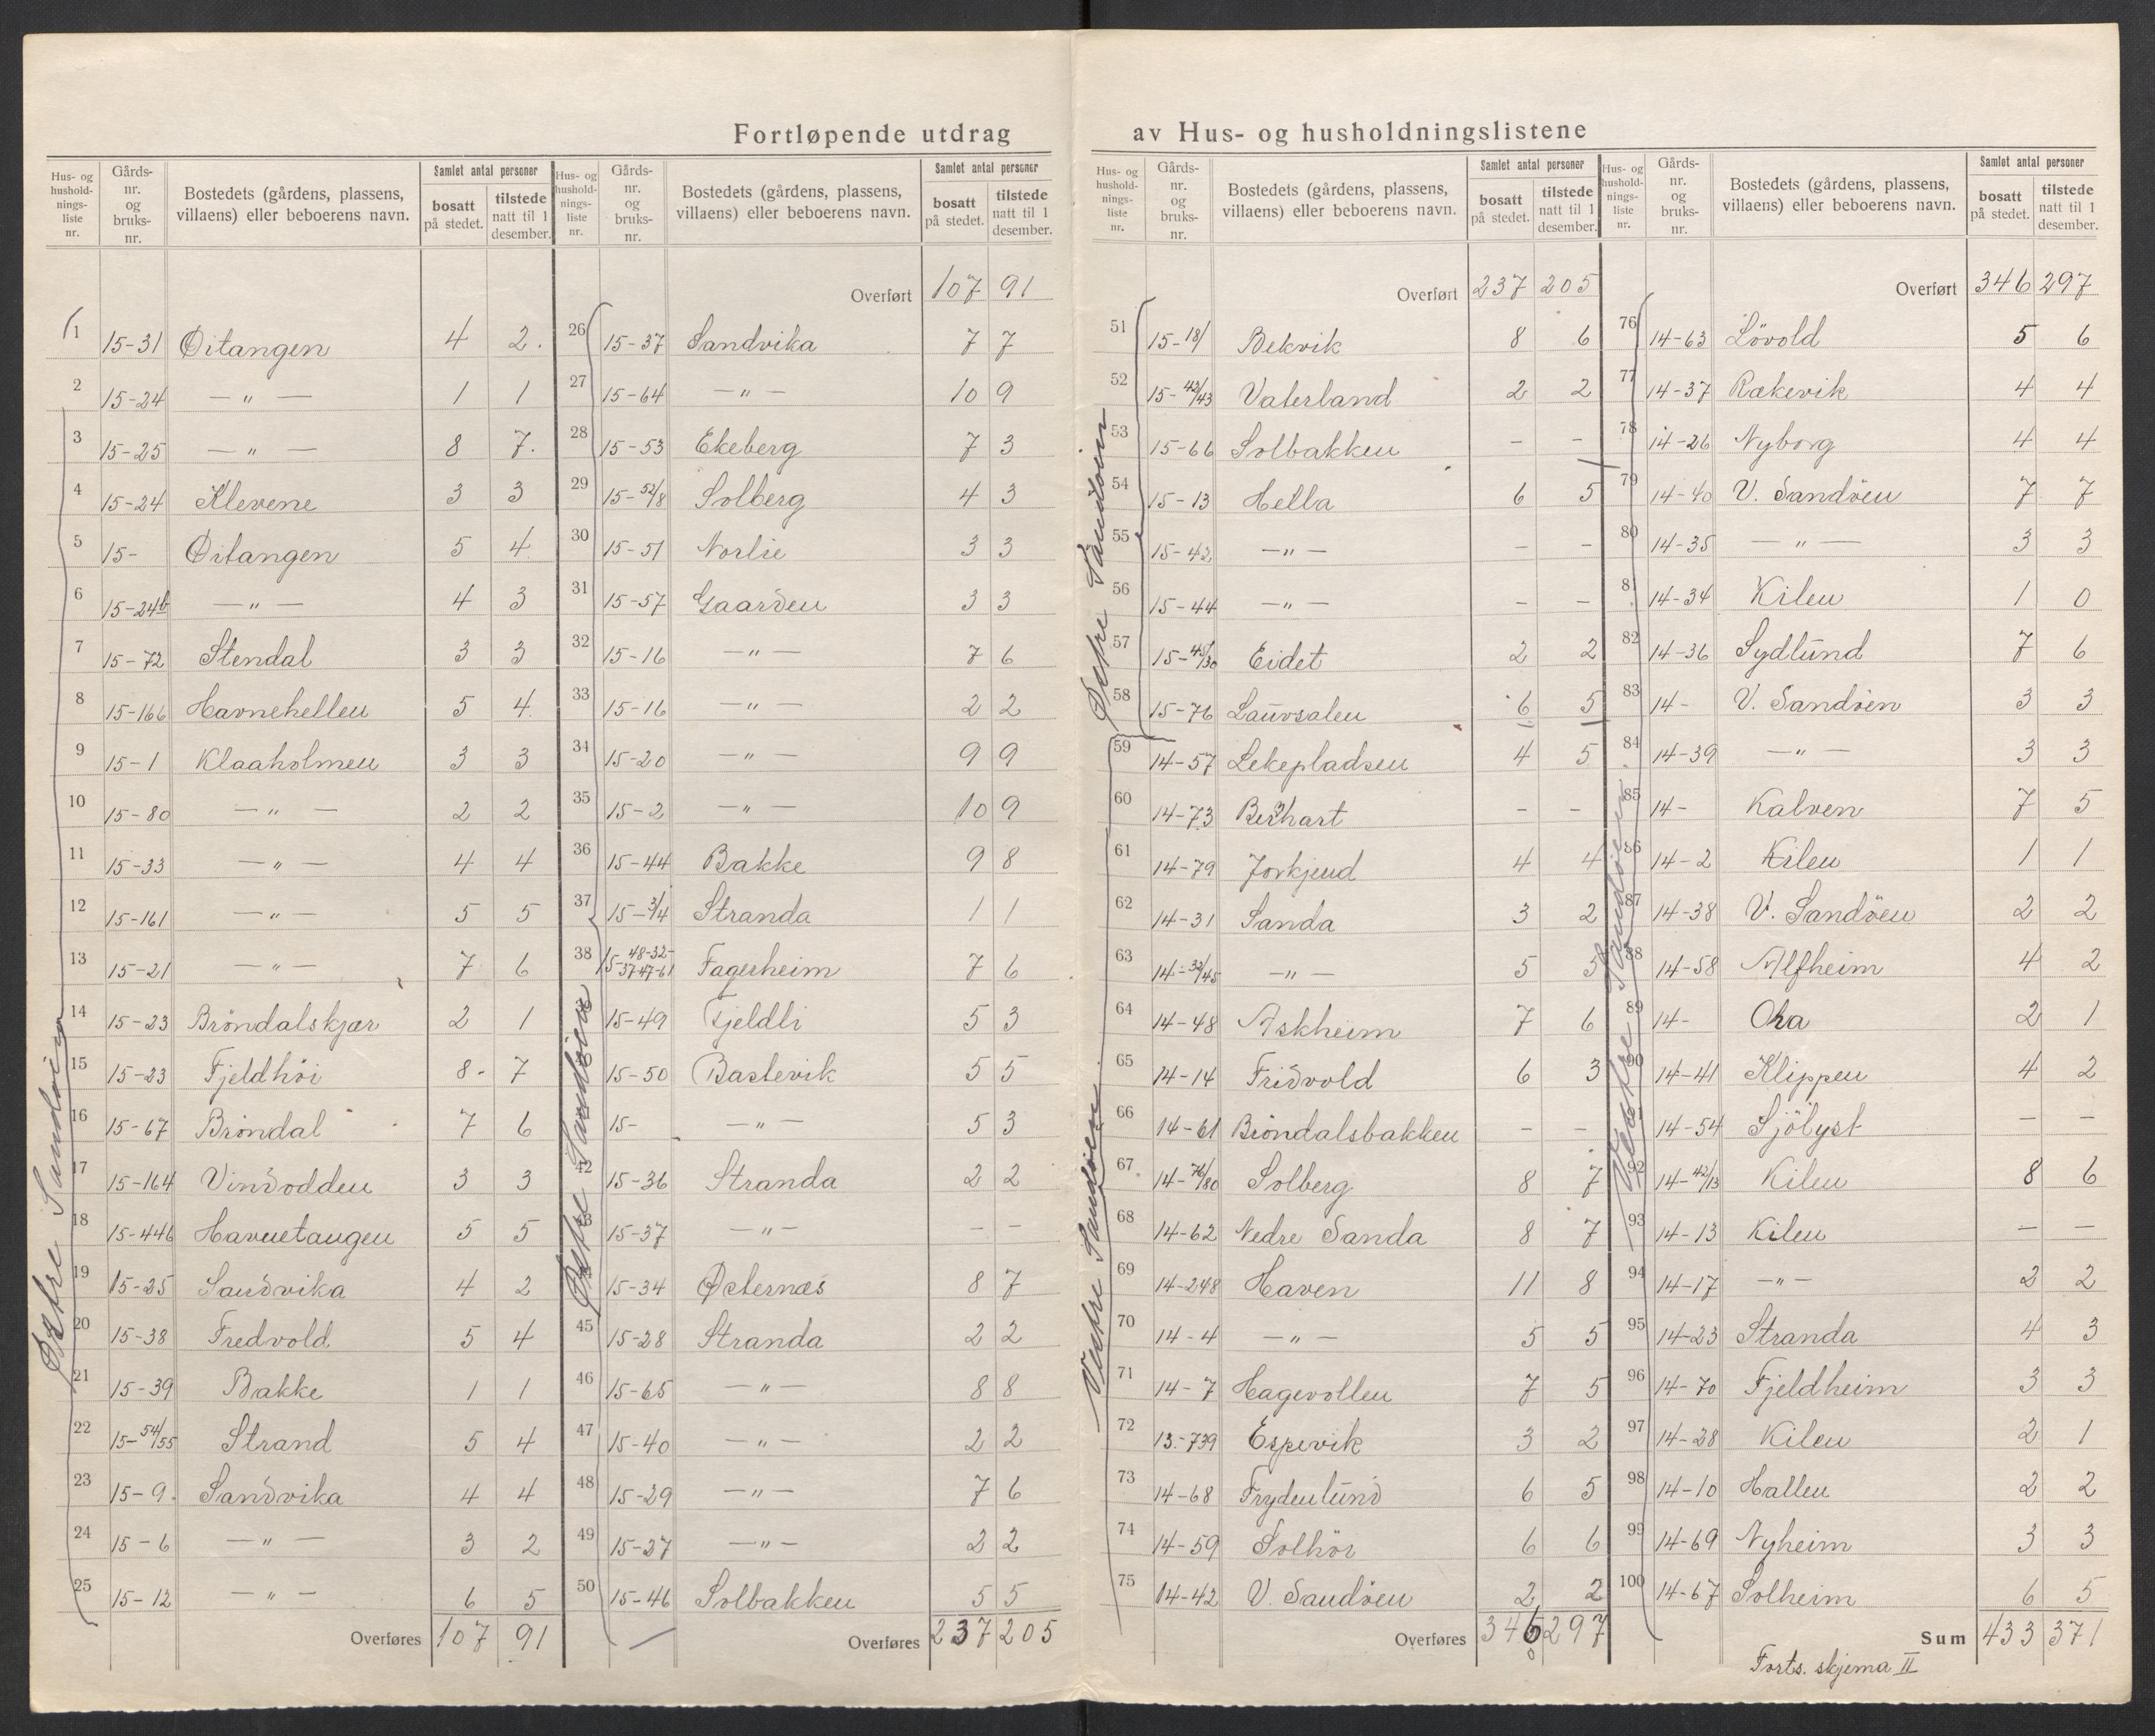 Fortløpende utdrag av Hus- og husholdningslistene
Hus- og husholdnings-liste nr. | Gårds-nr. og bruks-nr. | Bostedets (gårdens, plassens, villaens) eller beboerens navn. | Samlet antal personer | bosatt på stedet. | tilstede natt til 1 desember.
1 15-31 Öitangen 4 2.
2 15-24 — " — 1 1
3 15-25 — " — 8 7.
4 15-24 Klevene 3 3
5 15- Öitangen 5 4
6 15-24b — " — 4 3
7 15-72 Stendal 3 3
8 15-166 Havnehellen 5 4
9 15-1 Klaaholmen 3 3
10 15-80 — " — 2 2
11 15-33 — " — 4 4
12 15-161 — " — 5 5
13 15-21 — " — 7 6
14 15-23 Bröndalskjær 2 1
15 15-23 Fjeldhöi 8 7
16 15-67 Bröndal 7 6
17 15-164 Vindodden 3 3
18 15-446 Havnetangen 5 5
19 15-25 Sandvika 4 2
20 15-38 Fredvold 5 4
21 15-39 Bakke 1 1
22 15-54/55 Strand 5 4
23 15-9 Sandvika 4 4
24 15-6 — " — 3 2
25 15-12 — " — 6 5
Overføres 107 91
Østre Sandöien
Hus- og husholdnings-liste nr. | Gårds-nr. og bruks-nr. | Bostedets (gårdens, plassens, villaens) eller beboerens navn. | Samlet antal personer | bosatt på stedet. | tilstede natt til 1 desember.
Overført 107 91
26 15-37 Sandvika 7 7
27 15-64 — " — 10 9
28 15-53 Ekeberg 7 3
29 15-52/8 Solberg 4 3
30 15-51 Norlie 3 3
31 15-57 Gaarden 3 3
32 15-16 — " — 7 6
33 15-16 — " — 2 2
34 15-20 — " — 9 9
35 15-2 — " — 10 9
36 15-44 Bakke 9 8
37 15-3/4 Stranda 1 1
38 15-48-32-37-47-61 Fagerheim 7 6
15-49 Fjeldli 5 3
15-50 Bastevik 5 5
15- — " — 5 3
42 15-36 Stranda 2 2
15-37 — " — – –
15-34 Østernæs 8 7
45 15-28 Stranda 2 2
46 15-65 — " — 8 8
47 15-40 — " — 2 2
48 15-29 — " — 7 6
49 15-27 — " — 2 2
50 15-46 Solbakken 5 5
Overføres 237 205
Østre Sandöien
Hus- og husholdnings-liste nr. | Gårds-nr. og bruks-nr. | Bostedets (gårdens, plassens, villaens) eller beboerens navn. | Samlet antal personer | bosatt på stedet. | tilstede natt til 1 desember.
Overført 237 205
51 15-18/ Bekvik 8 6
52 15-42/43 Vaterland 2 2
53 15-66 Solbakken – –
54 15-13 Hella 6 5
55 15-42 — " — – –
56 15-44 — " — – –
57 15-45/30 Eidet 2 2
58 15-76 Laursalen 6 5
59 14-57 Lekepladsen 4 5
60 14-73 – –
61 14-79 4 4
62 14-31 Sanda 3 2
63 14-32/45 — " — 5 5
64 14-48 Askheim 7 6
65 14-14 Fridvold 6 3
66 14-61 Bröndalsbakken – –
67 14-76/80 Solberg 8 7
68 14-62 Nedre Sanda 8 7
69 14-248 Haven 11 8
70 14-4 — " — 5 5
71 14-7 Hagevollen 7 5
72 13-739 Espevik 3 2
73 14-68 Frydenlund 6 5
74 14-59 Solhör 6 6
75 14-42 V. Sandöen 2 2
Overføres 346 297
Østre Sandöien
Vestre Sandöien
Hus- og husholdnings-liste nr. | Gårds-nr. og bruks-nr. | Bostedets (gårdens, plassens, villaens) eller beboerens navn. | Samlet antal personer | bosatt på stedet. | tilstede natt til 1 desember.
Overført 346 297
76 14-63 Lövold 5 6
77 14-37 Rækevik 4 4
78 14-26 Nyborg 4 4
79 14-40 V. Sandöen 7 7
80 14-35 — " — 3 3
81 14-34 Kilen 1 0
82 14-36 Sydlund 7 6
83 14- V. Sandöen 3 3
84 14-39 — " — 3 3
85 14- Kalven 7 5
86 14-2 Kilen 1 1
87 14-38 V. Sandöen 2 2
88 14-58 Alfheim 4 2
89 14- Ora 2 1
90 14-41 Klippen 4 2
14-54 Sjölyst – –
92 14-42/13 Kilen 8 6
93 14-13 Kilen – –
94 14-17 — " — 2 2
95 14-23 Stranda 4 3
96 14-70 Fjeldheim 3 3
97 14-28 Kilen 2 1
98 14-10 Hallen 2 2
99 14-69 Nyheim 3 3
100 14-67 Solheim 6 5
Sum 433 371
Vestre Sandöien
Forts. skjema II